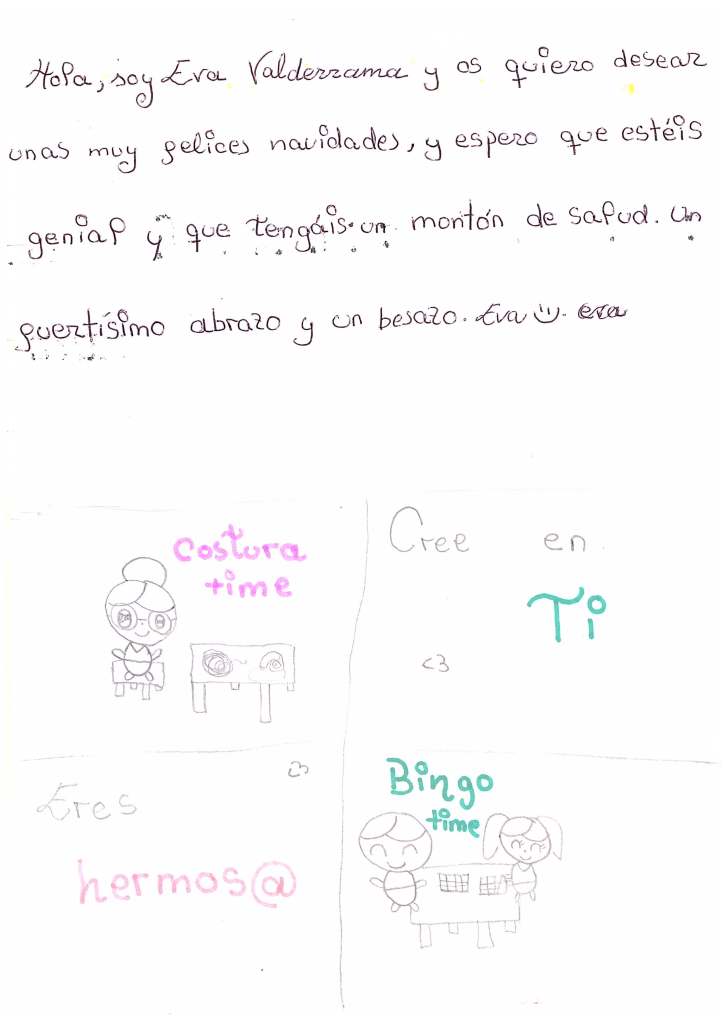 Hola, soy Eva Valderrama y os quiero desear
unas muy felices navidades, y espero que estéis
genial y que tengáis un montón de salud. Un
fuertísimo abrazo y un besazo. Eva :). eva
Costura
time
Cree en
Ti
<3
Eres
<3
hermos@
Bingo
time